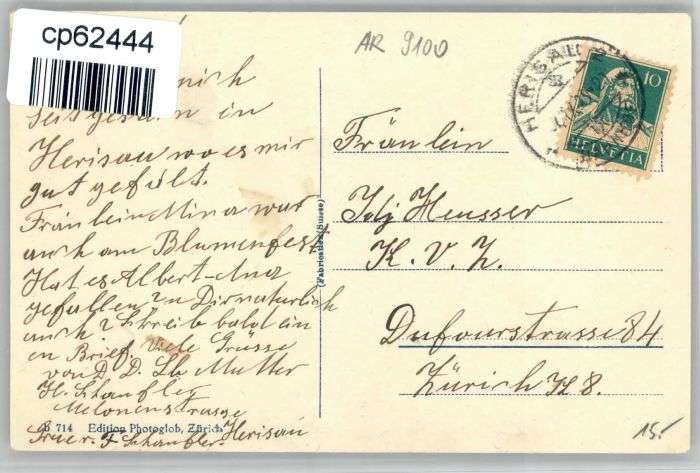 cp62444
AR 9100
HERISAU
10
HELVETIA
mich
seit gestern in
Herisau wo es mir
gut gefält.
Fräulein Mina war
auch am Blumenfest
Hat es Albert
gefallen Dir natürlich
auch ? Schreib bald ein
en Brief. Viele Grüsse
von D. D. Lb Mutter
H. Schaufler
Melonenstrasse
Herisau
714 Edition Photoglob, Zürich
(Fabrication Suisse)
Fräulein
Idj Heusser
K. V. Z.
Dufourstrasse 84
Zürich 8.
15.-